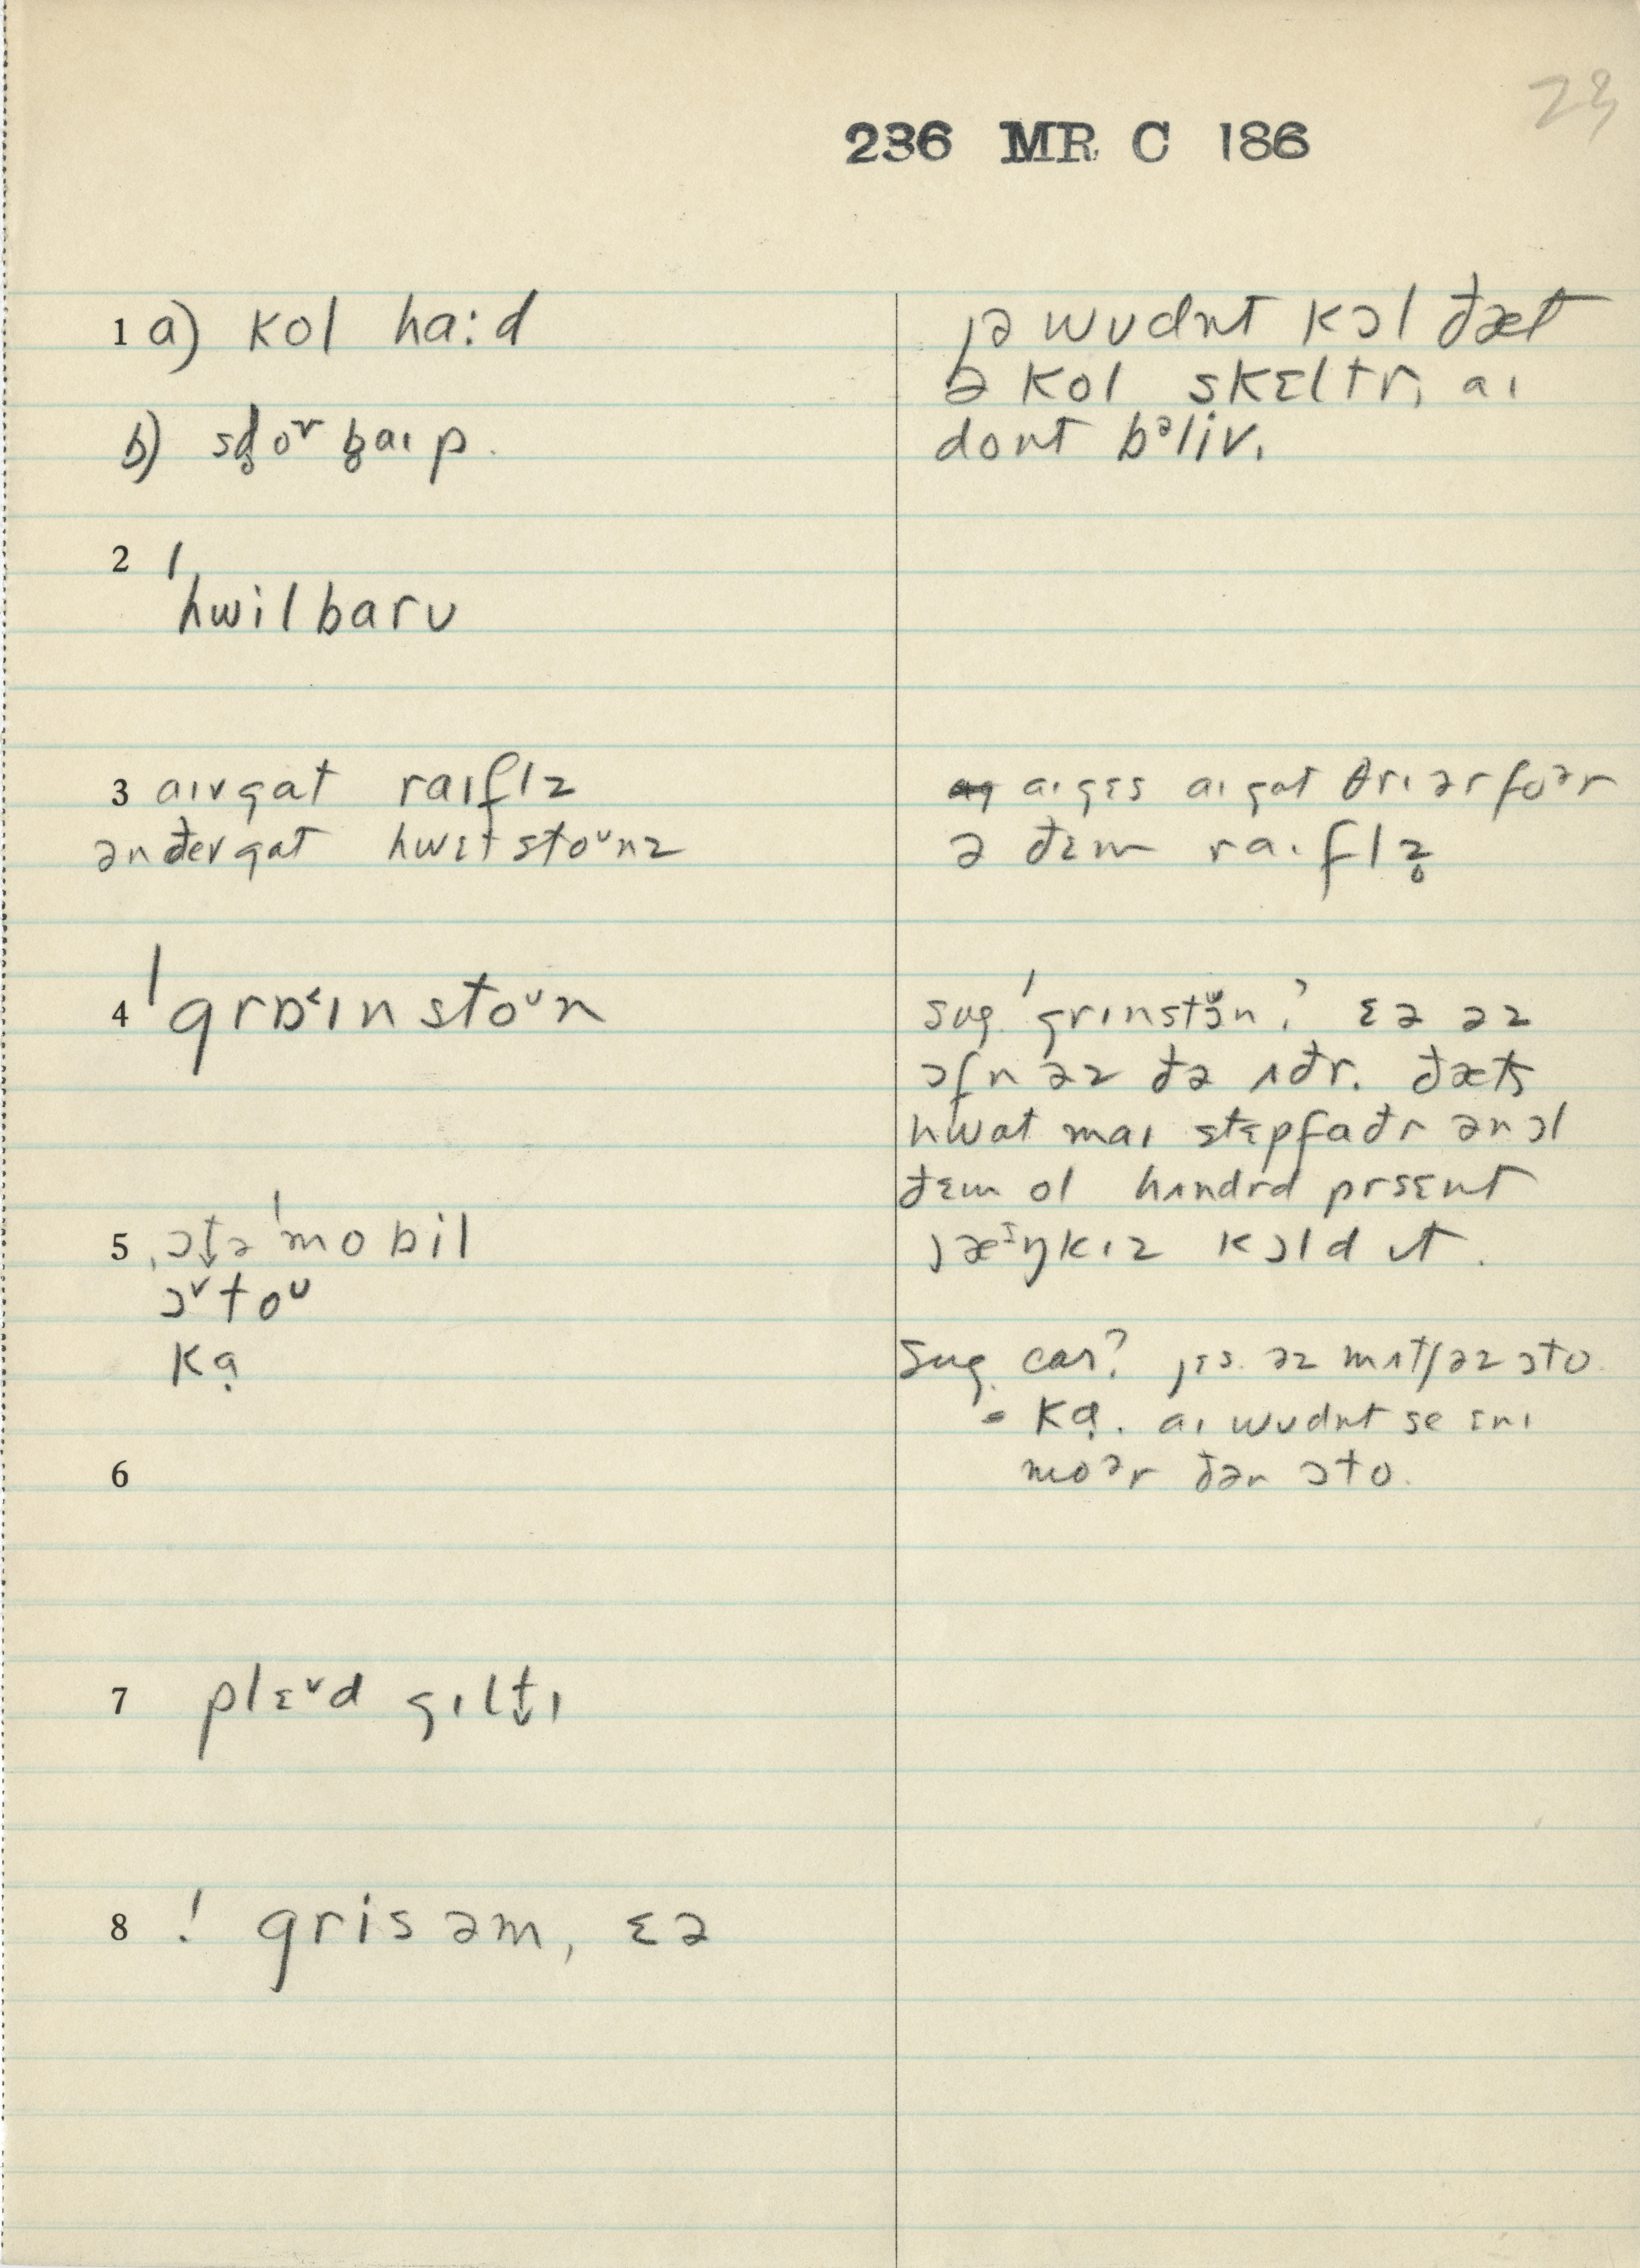 23
236 MR C 186
1 a) kol ha:d
b) sd̥oʳ b̥aɪp.
2 ˈhwilbarʊ
3 aɪvgat raɪflz
ənðevgat hwɛtstoᶷnz
4 ˈgrɒ˂ɪnstoᶷn
5 ˌɔt̬əˈmobil
ɔ˅toᶷ
kɑ̣
6
7 plɛ˅d gɪlt̬ɪ
8 ! grisəm, ɛə
jə wʊdnt kɔl ðæt
ə kol skɛltr, aɪ
dont bᵊliv.
aɪgɛs aɪgat θrɪ ər foᵊr
ə ðɛm raɪflz̥
sug ˈgrɪnstən? ɛə əz
ɔfn əz ðə ʌðr. ðæts
hwat maɪ stɛpfaðr ən ɔl
ðɛm ol hʌndrd prsɛnt
jæᶦŋkɪz kɔld ɪt.
sug. car? jɛs. əz mʌtʃ əz ɔto.
- kɑ̣. aɪ wʊdnt se ɛnɪ
moᵊr ðən ɔto.